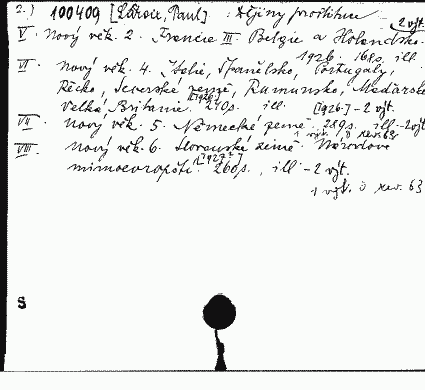 2.) 100409 [Lacroix, Paul] : Dějiny prostituce - 2 výt.
V. Nový věk. 2. Francie III Belgie a Holandsko.
1926. 168s. ill
VI. Nový věk. 4. Italie, Španělsko, Portugaly,
Řecko, Severské země, Rumunsko, Maďarsko
Velká Britanie. [1926.] 240s. ill. [1926.] - 2 výt.
VII nový věk. 5. Německé země. s. ill - 2 výt
1 výt. rev. 63
VIII. nový věk. 6. Slovanské země. Národové
mimoevropští. [1927?] 260s., ill - 2 výt.
1 výt. rev. 63
S